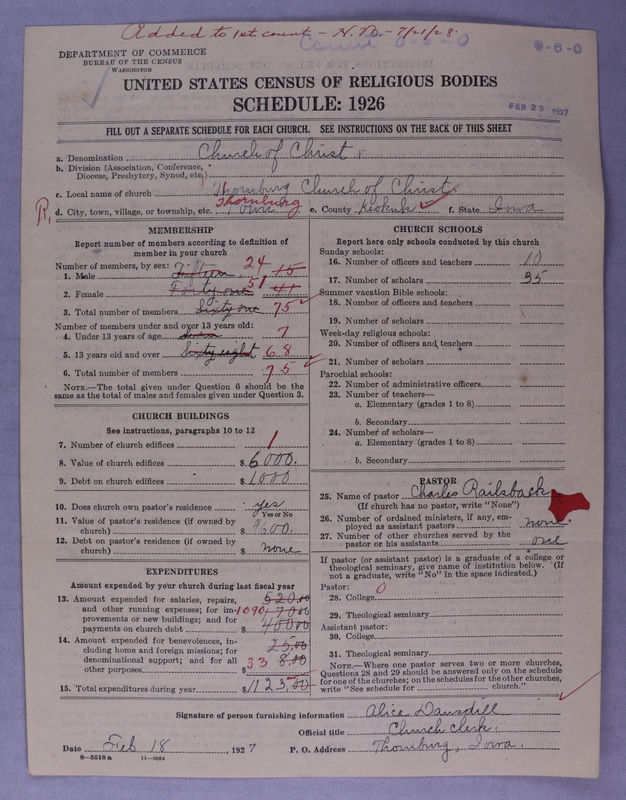 Added to 1st count - N.D. - 7/21/28.
9-6-0
DEPARTMENT OF COMMERCE
BUREAU OF THE CENSUS
WASHINGTON
UNITED STATES CENSUS OF RELIGIOUS BODIES
SCHEDULE: 1926
FEB 23 1927
FILL OUT A SEPARATE SCHEDULE FOR EACH CHURCH. SEE INSTRUCTIONS ON THE BACK OF THIS SHEET
a. Denomination Church of Christ
b. Division (Association, Conference, Diocese, Presbytery, Synod, etc.)
c. Local name of church Thornburg Church of Christ
R. d. City, town, village, or township, etc. Thornburg Town e. County Keokuk f. State Iowa
MEMBERSHIP
Report number of members according to definition of member in your church
Number of members, by sex:
1. Male Fifteen 24 15
2. Female Forty one 51 41
3. Total number of members Sixty one 75
Number of members under and over 13 years old:
4. Under 13 years of age Seven 7
5. 13 years old and over Sixty eight 68
6. Total number of members 75
NOTE.—The total given under Question 6 should be the same as the total of males and females given under Question 3.
CHURCH BUILDINGS
See instructions, paragraphs 10 to 12
7. Number of church edifices 1
8. Value of church edifices $ 6000.
9. Debt on church edifices $ 1000
10. Does church own pastor's residence yes
Yes or No
11. Value of pastor's residence (if owned by church) $ 00.
12. Debt on pastor's residence (if owned by church) $ none
EXPENDITURES
Amount expended by your church during last fiscal year
13. Amount expended for salaries, repairs, and other running expenses; for improvements or new buildings; and for payments on church debt $ 520.00 1090 400.00
14. Amount expended for benevolences, including home and foreign missions; for denominational support; and for all other purposes $ 25.00 33 8.00
15. Total expenditures during year $ 1123.00
CHURCH SCHOOLS
Report here only schools conducted by this church
Sunday schools:
16. Number of officers and teachers 10
17. Number of scholars 35
Summer vacation Bible schools:
18. Number of officers and teachers
19. Number of scholars
Week-day religious schools:
20. Number of officers and teachers
21. Number of scholars
Parochial schools:
22. Number of administrative officers
23. Number of teachers—
a. Elementary (grades 1 to 8)
b. Secondary
24. Number of scholars—
a. Elementary (grades 1 to 8)
b. Secondary
PASTOR
25. Name of pastor Charles Railsback
(If church has no pastor, write "None")
26. Number of ordained ministers, if any, employed as assistant pastors none
27. Number of other churches served by the pastor or his assistants one
If pastor (or assistant pastor) is a graduate of a college or theological seminary, give name of institution below. (If not a graduate, write "No" in the space indicated.)
Pastor:
28. College 0
29. Theological seminary
Assistant pastor:
30. College
31. Theological seminary
NOTE.—Where one pastor serves two or more churches, Questions 28 and 29 should be answered only on the schedule for one of the churches; on the schedules for the other churches, write "See schedule for ______ church."
Signature of person furnishing information Alice Dansdill
Official title Church Clerk.
Date Feb 18, 1927 P. O. Address Thornburg, Iowa.
8—5518 a 11—9084